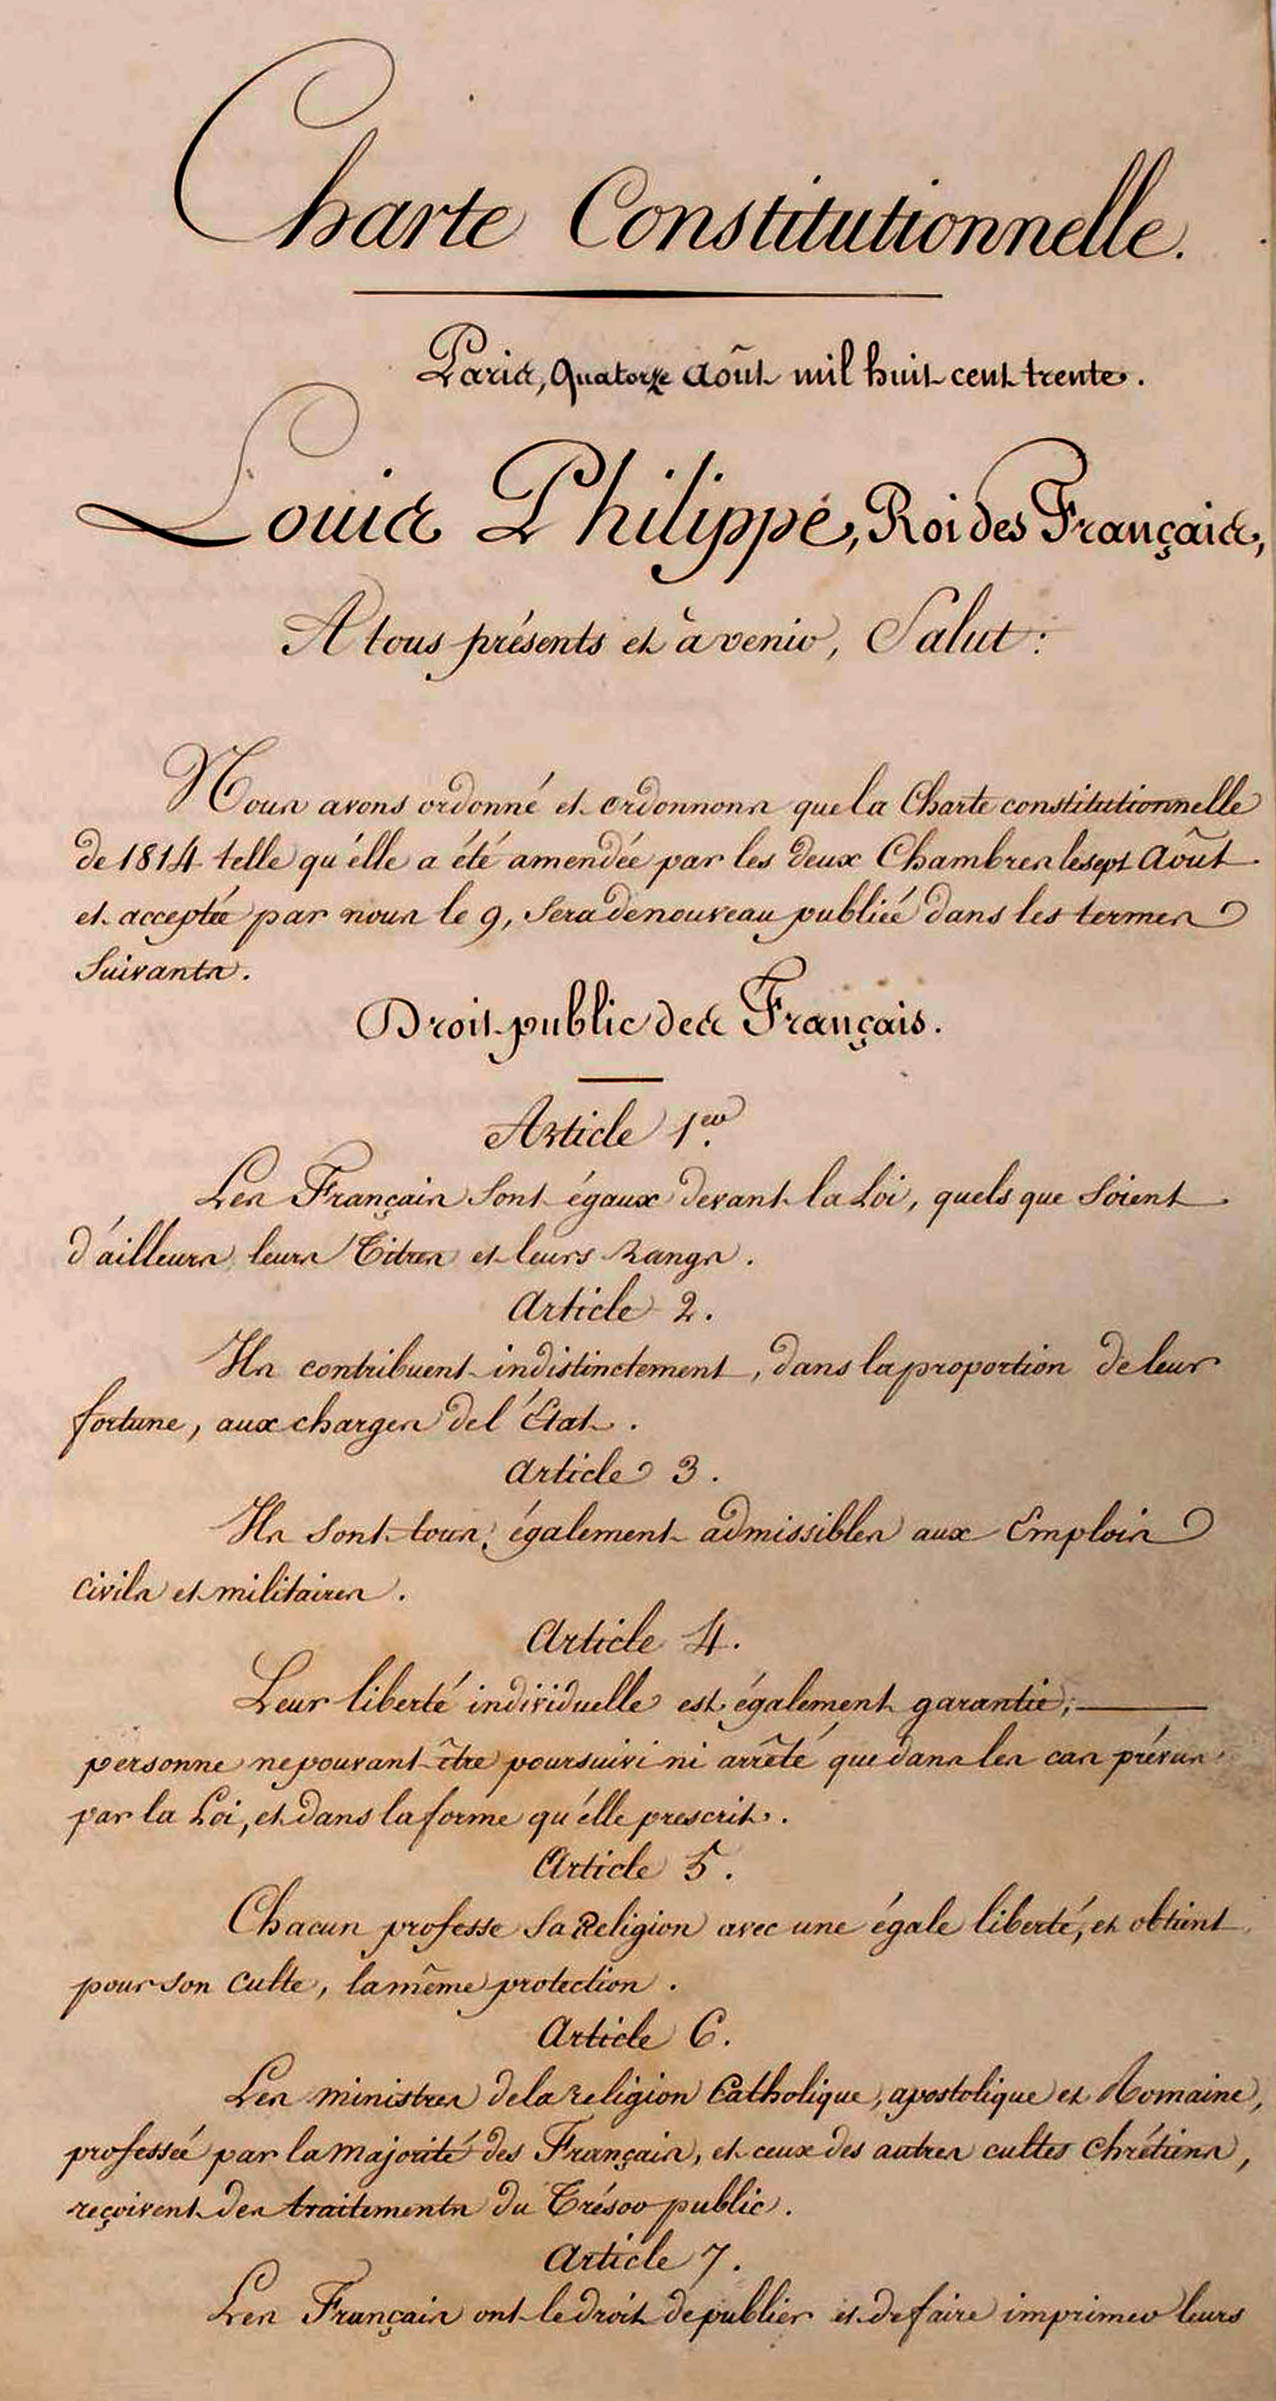 Charte Constitutionnelle.
Paris, Quatorze Août mil huit cent trente.
Louis Philippe, Roi des Français,
A tous présents et à venir, Salut :
Nous avons ordonné et ordonnons que la Charte constitutionnelle
de 1814 telle qu'élle a été amendée par les deux Chambres le sept Août
et acceptée par nous le 9, sera de nouveau publiée dans les termes
suivants.
Droit public des Français.
Article 1er.
Les Français sont égaux devant la Loi, quels que soient
d'ailleurs leurs Titres et leurs Rangs.
Article 2.
Ils contribuent indistinctement, dans la proportion de leur
fortune, aux charges de l'État.
Article 3.
Ils sont tous également admissibles aux Emplois
civils et militaires.
Article 4.
Leur liberté individuelle est également garantie,
personne ne pouvant être poursuivi ni arrêté que dans les cas prévus
par la Loi, et dans la forme qu'élle prescrit.
Article 5.
Chacun professe sa Religion avec une égale liberté, et obtient
pour son Culte, la même protection.
Article 6.
Les ministres de la religion Catholique, apostolique et Romaine,
professée par la majorité des Français, et ceux des autres cultes Chrétiens,
reçoivent des traitements du Trésor public.
Article 7.
Les Français ont le droit de publier et de faire imprimer leurs